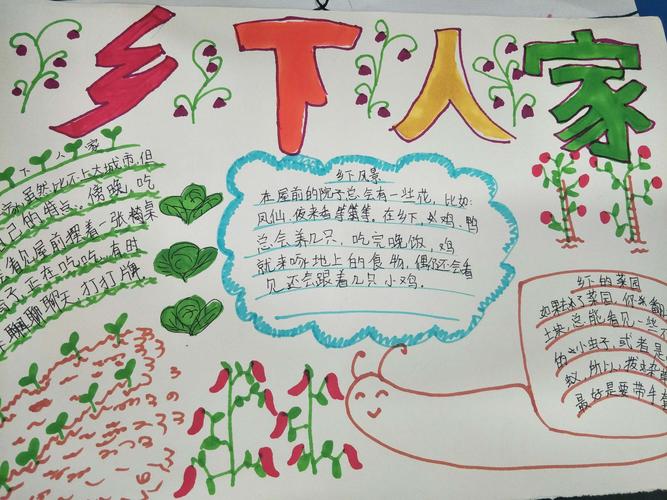 乡下人家
下人家
虽然比不上大城市,但
己的特点。傍晚,吃
看见屋前摆着一张椅桌
子,正在吃吃,有时
聊聊聊天,打打牌
乡下风景
在屋前的院子总会有一些花,比如:
凤仙、夜来香等等等,在乡下,鸡,鸭
总会养几只,吃完晚饭,鸡
就来啄地上的食物,偶尔还会看
见还会跟着几只小鸡。
乡下的菜园
如果来了菜园,你翻
土块,总能看见一些
的小虫子,或者是
蚁,所以,拨
最好是要带手套